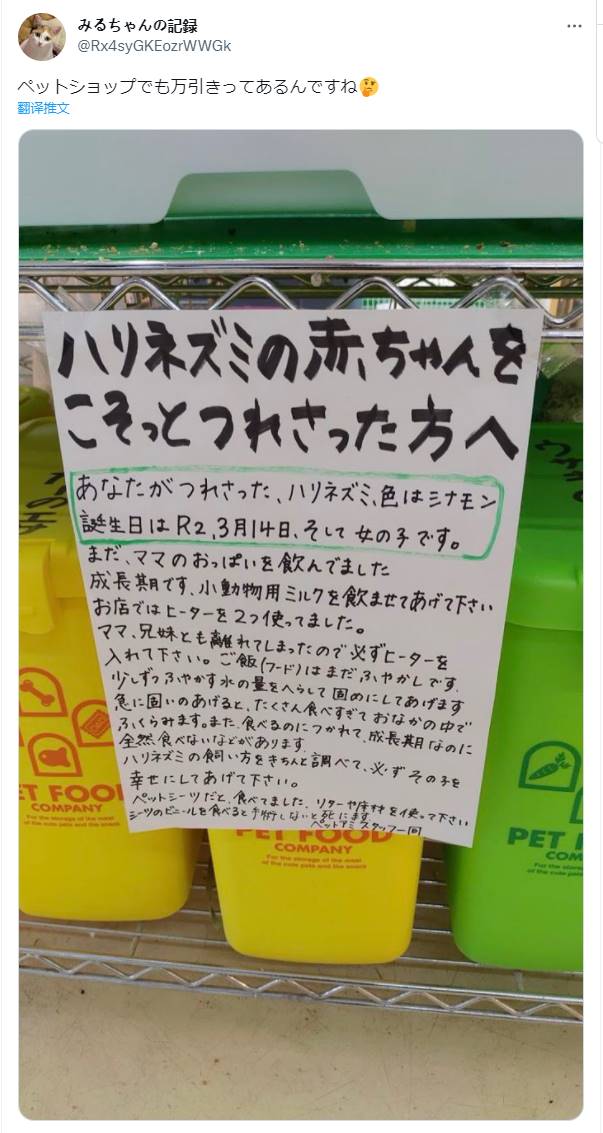 みるちゃんの記録
@Rx4syGKEozrWWGk
ペットショップでも万引きってあるんですね🤔
翻译推文
ハリネズミの赤ちゃんを
こそっとつれさった方へ
あなたがつれさった、ハリネズミ、色はシナモン
誕生日はR2,3月14日、そして女の子です。
まだ、ママのおっぱいを飲んでました
成長期です、小動物用ミルクを飲ませてあげて下さい
お店ではヒーターを2つ使ってました。
ママ、兄妹とも離れてしまったので必ずヒーターを
入れて下さい。ご飯(フード)はまだふやかしです、
少しずつふやかす水の量をへらして固めにしてあげます
急に固いのあげると、たくさん食べすぎておなかの中で
ふくらみます。また、食べるのにつかれて、成長期なのに
全然食べないなどがあります、
ハリネズミの飼い方をきちんと調べて、必ずその子を
幸せにしてあげて下さい。
ペットシーツだと、食べてました、リターや床材を使って下さい
シーツのビニールを食べると手術しないと死にます
ペットアミスタッフ一同
ET FOOD
COMPANY
PET FOOD
COMPANY
For the storage of the meal
of the cute pets and the snack
PET F
COM